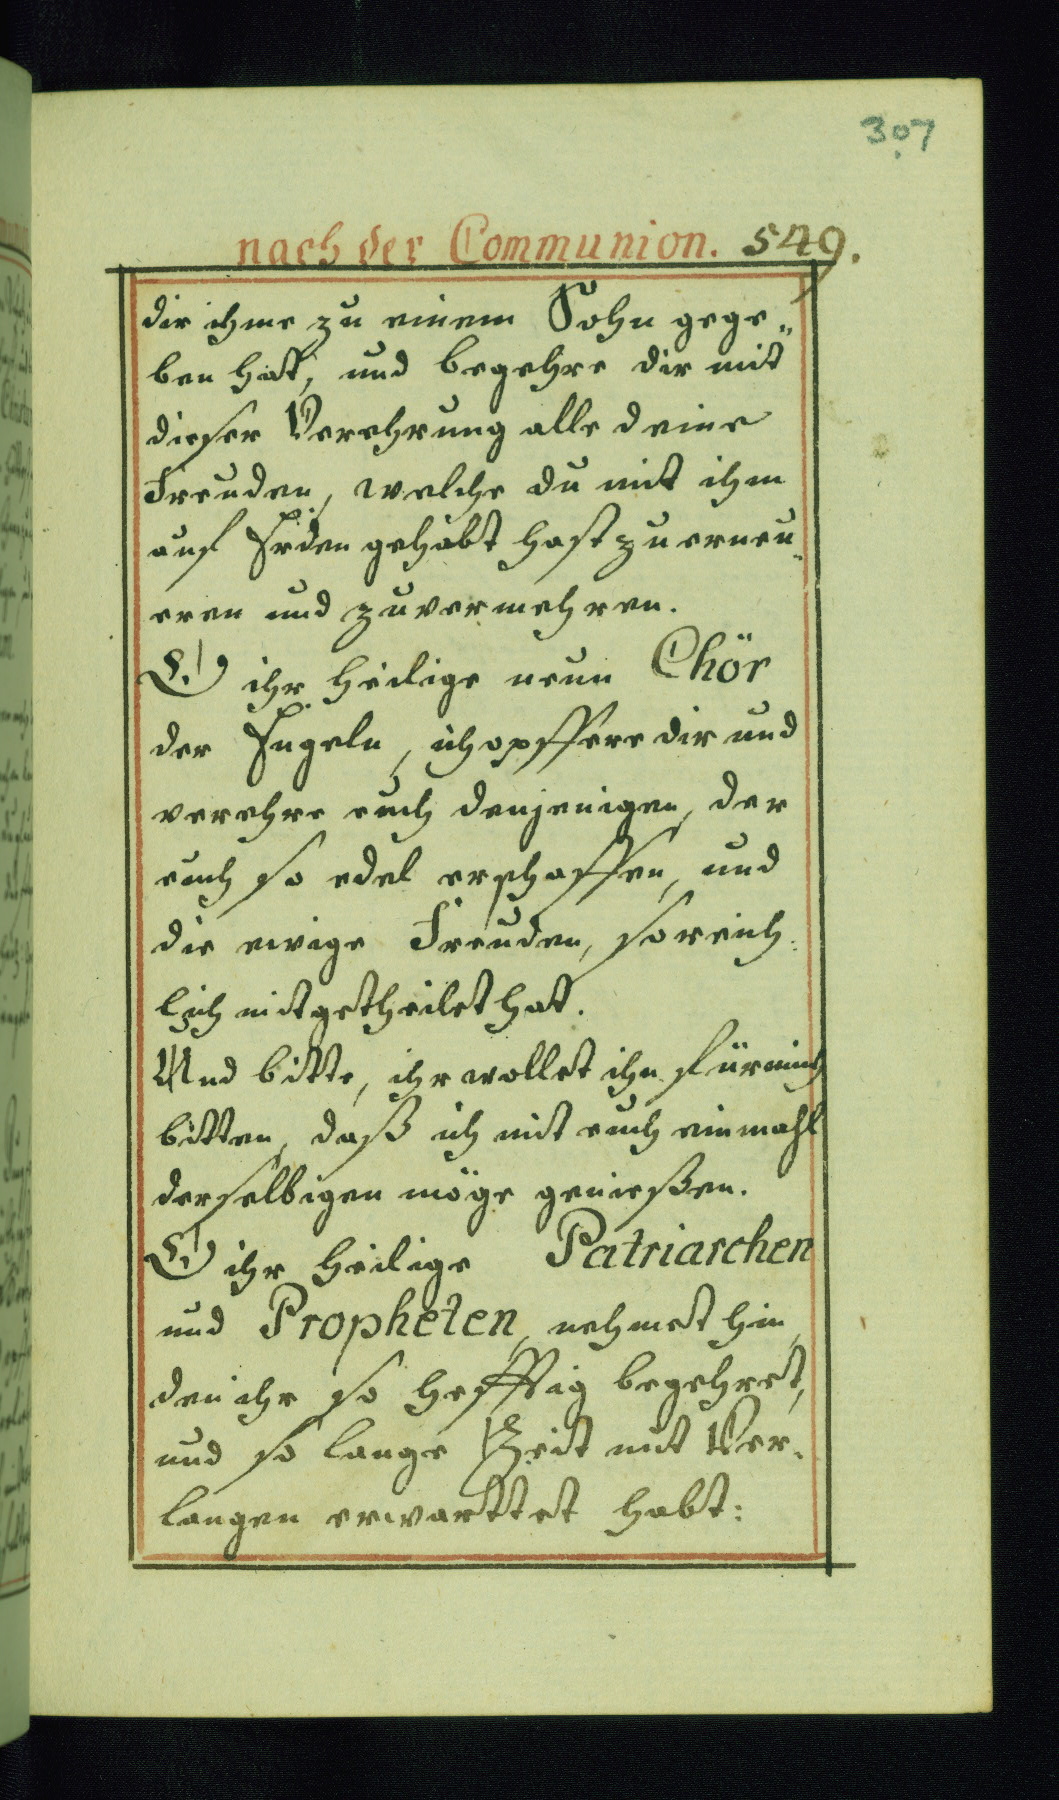 307
nach der Communion. 549.
dir ihme zu einem Sohn gege„
ben hat, und begehre dir mit
dieser Verehrung alle deine
Freuden, welche du mit ihm
auf Erden gehabt hast zu erneu„
eren und zuvermehren.
O ihr heilige neun Chör
der Engeln, ich opffere dir und
verehre euch denjenigen, der
euch so edel erschaffen, und
die ewige Freuden, so reich„
lich mitgetheilet hat.
Und bitte, ihr wollet ihn für mich
bitten, daß ich mit euch einmahl
derselbigen möge genießen.
O ihr heilige Patriarchen
und Propheten, nehmet hin,
den ihr so hefftig begehret,
und so lange Zeit mit Ver„
langen erwarttet habt: